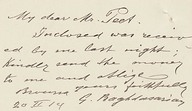 My dear Mr. Peet.
Inclosed was received
ed by me last night;
Kindly send the money
to me and oblige
Yours faithfully
20 II 14 G. Baghdasarian